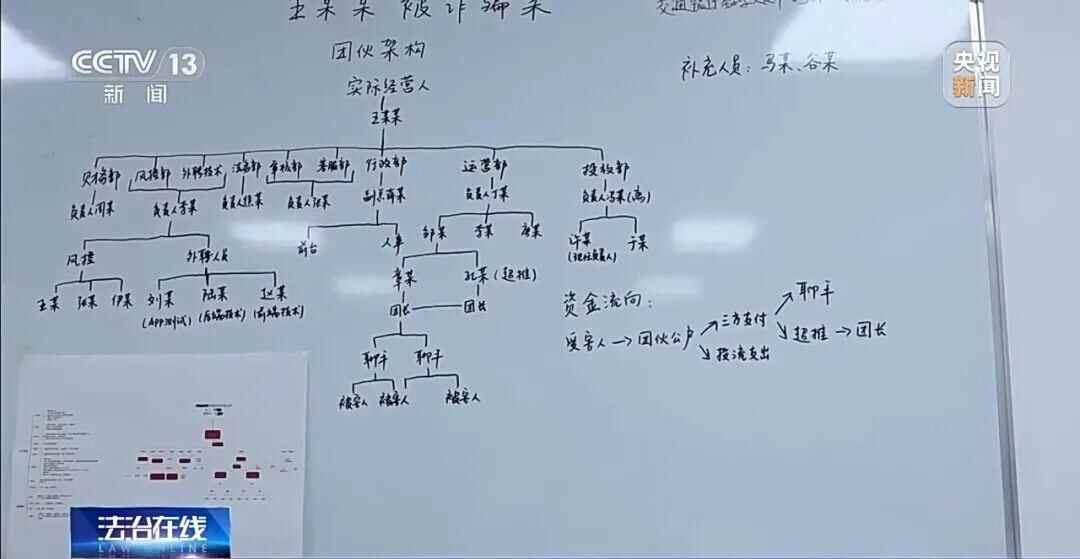 王某某被诈骗案
CCTV 13
新闻
央视
新闻
团伙架构
补充人员：马某、谷某
实际经营人
王某某
风控部 外聘技术 法务部 审核部 客服部 行政部 运营部 投放部
负责人周某 负责人李某 负责人焦某 负责人张某 负责人丁某 负责人冯某(离)
邹某 李某 唐某
许某 于某
(现任负责人)
风控 外聘人员 前台 人事
章某 孔某(超推)
王某 张某 伊某 刘某 陆某 赵某
(APP测试) (后端技术) (前端技术)
团长 团长
资金流向：
聊手
受害人→团伙公户 三方支付
投流支出 超推→团长
聊手 聊手
被害人 被害人 被害人
法治在线
LAW ONLINE